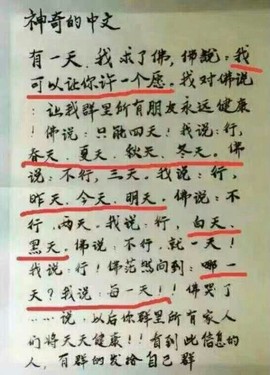 神奇的中文
有一天、我求了佛，佛说：我
可以让你许一个愿。我对佛说
：让我群里所有朋友永远健康
！佛说：只能四天！我说：行，
春天、夏天、秋天、冬天。佛
说：不行，三天。我说：行，
昨天、今天、明天。佛说：不
行，两天。我说：行，白天、
黑天。佛说：不行，就一天！
我说：行！佛茫然问到：哪一
天？我说：每一天！！佛哭了
……说：以后你群里所有家人
们将天天健康！！看到此信息的
人，有群的发给自己群